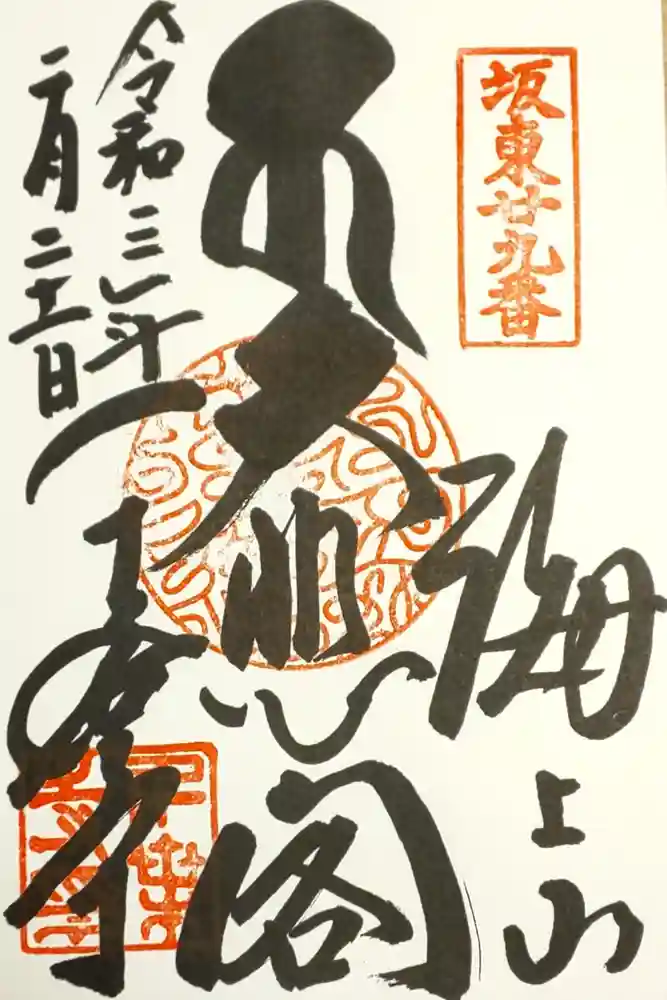 坂東廿九番
海上山
大悲閣
令和三年
二月二十一日
千葉寺